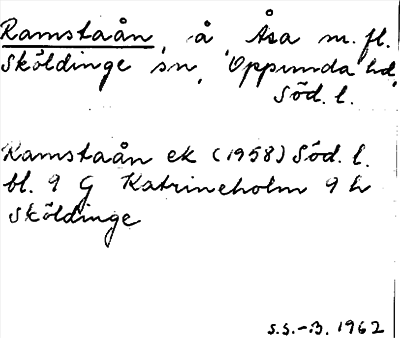 Ramstaån, å, Åsa m. fl.
Sköldinge sn, Oppunda hd,
Söd. l.
Ramstaån ek (1958) Söd. l.
bl. 9 G Katrineholm 9 h
Sköldinge
S.S.-B. 1962